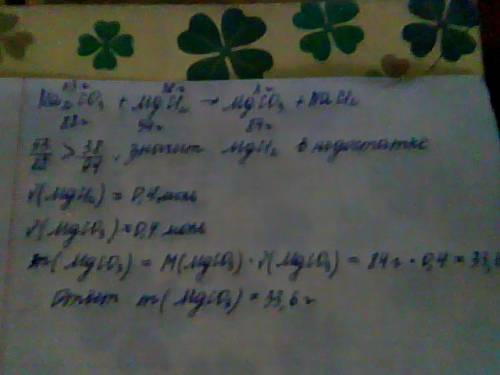 Na₂CO₃ + MgCl₂ → MgCO₃ + NaCl₂
84г
> 38, значит MgCl₂ в недостатке
ν(MgCl₂) = 0,4 моль
ν(MgCO₃) = 0,4 моль
m(MgCO₃) = M(MgCO₃) · ν(MgCO₃) = 84 г · 0,4 = 33,6
Ответ m(MgCO₃) = 33,6 г